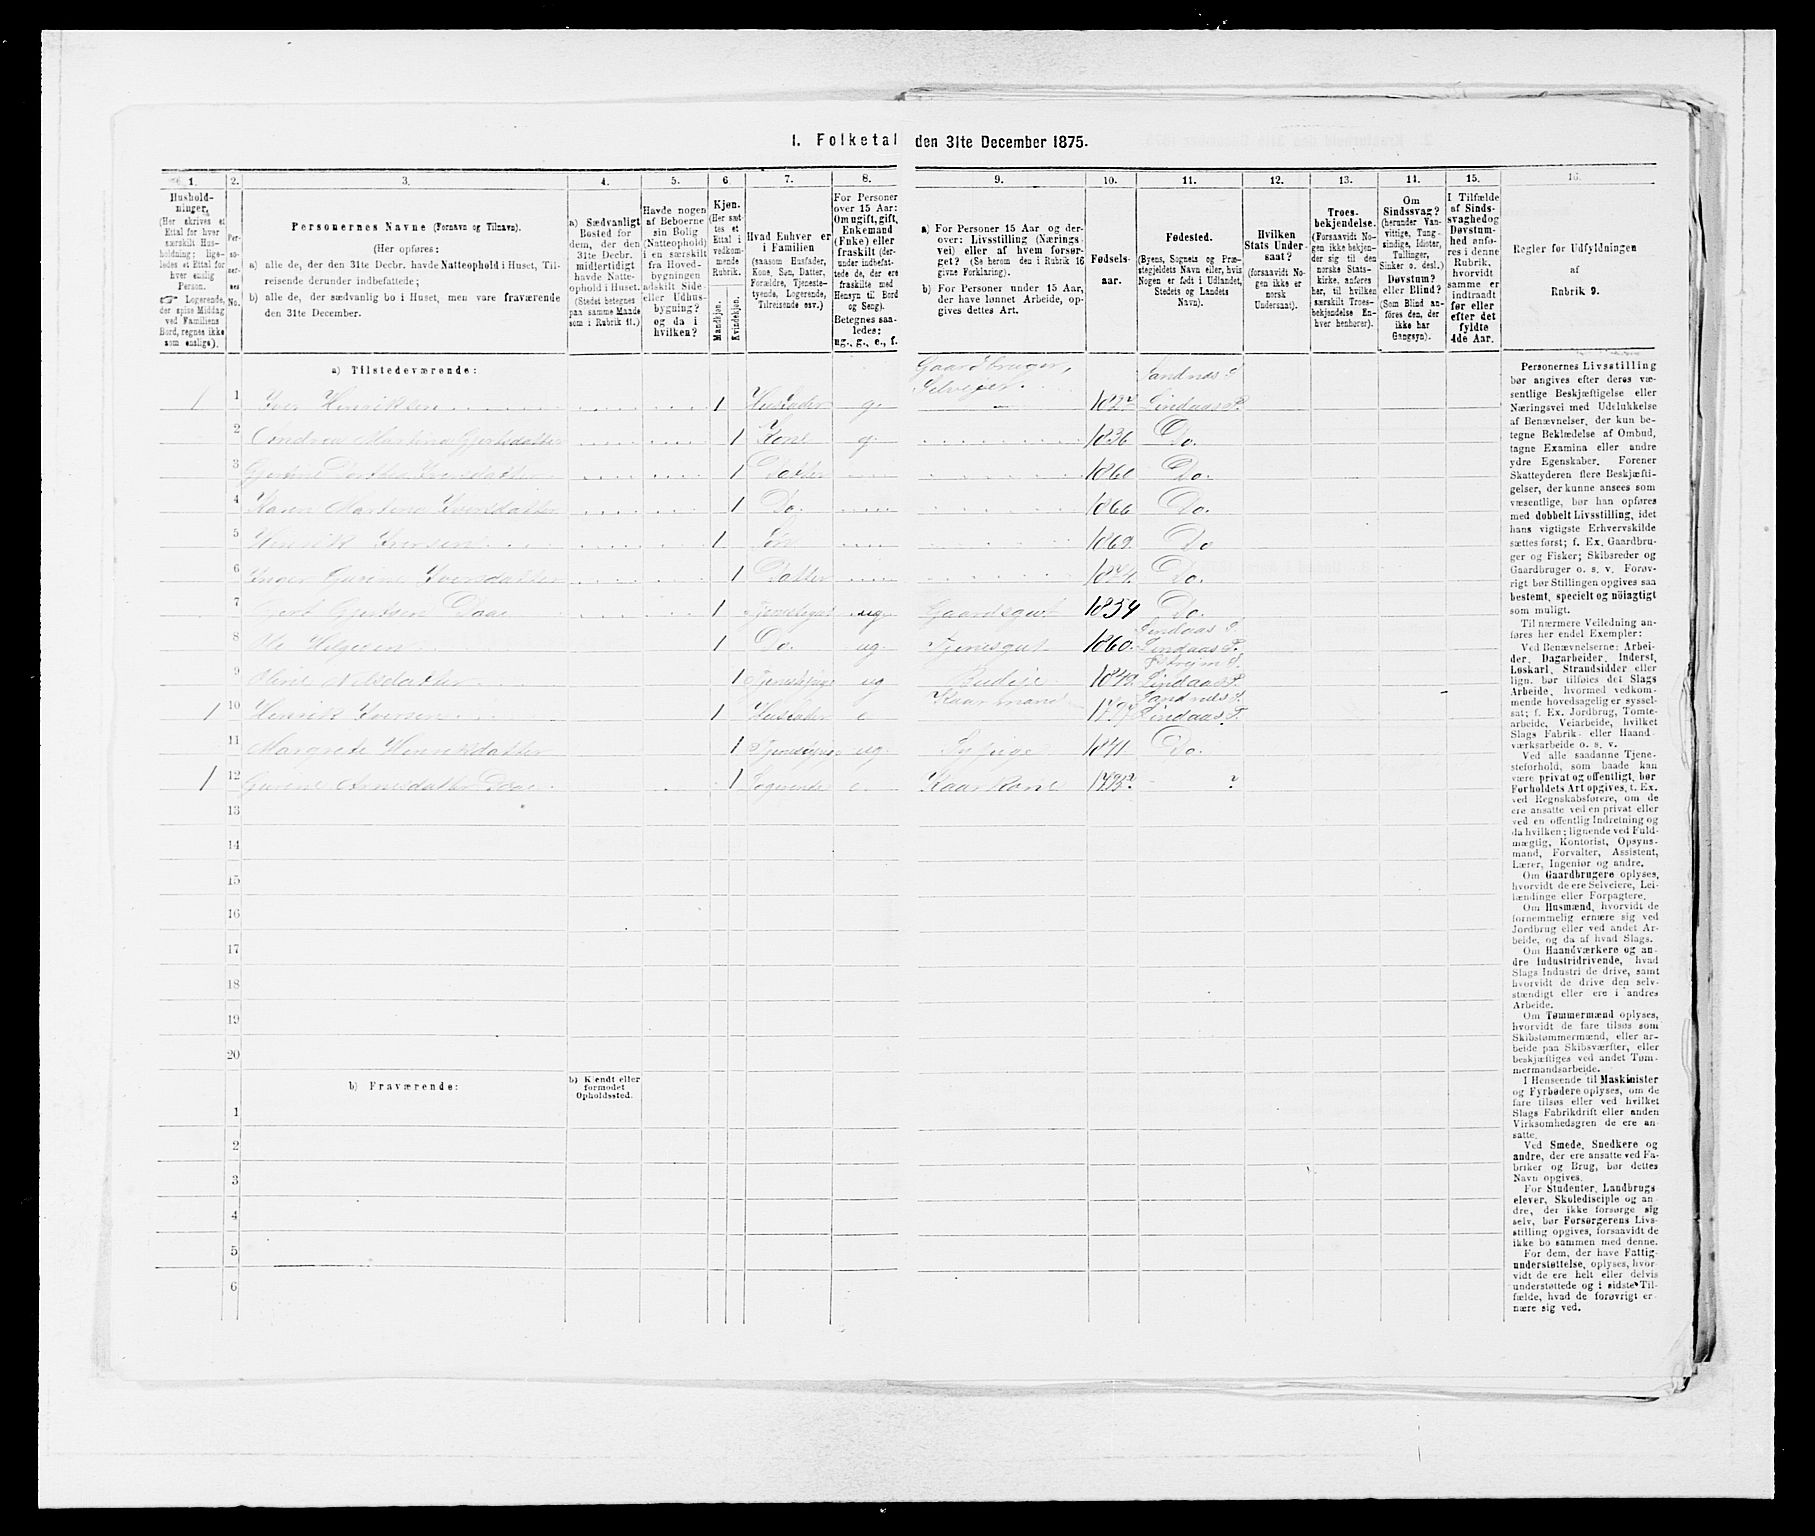 1. Folketal den 31te December 1875.
1.
2.
3.
4.
5.
6.
7.
8.
9.
10.
11.
12.
13.
14.
15.
16.
Hushold-
ninger,
(Her skrives et
Ettal for hver
særskilt Hus-
holdning; lige-
ledes et Ettal for
hver enslig
Person.
☞ Logerende,
der spise Middag
ved Familiens
Bord, regnes ikke
som enslige).
Per-
so-
ner-
nes
No.
Personernes Navne (Fornavn og Tilnavn).
(Her opføres:
a) alle de, der den 31te Decbr. havde Natteophold i Huset, Til-
reisende derunder indbefattede;
b) alle de, der sædvanlig bo i Huset, men vare fraværende
den 31te December.
a) Sædvanligt
Bosted for
dem, der den
31te Decbr.
midlertidigt
havde Natte-
ophold i Huset.
(Stedet betegnes
paa samme Maade
som i Rubrik 11.)
Havde nogen
af Beboerne
sin Bolig
(Natteophold)
i en særskilt
fra Hoved-
bygningen
adskilt Side-
eller Udhus-
bygning?
og da i
hvilken?
Kjøn.
(Her sæt-
tes et
Ettal i
vedkom-
mende
Rubrik.
Mandkjøn.
Kvindekjøn.
Hvad Enhver er
i Familien
(saasom Husfader,
Kone, Søn, Datter,
Forældre, Tjeneste-
tyende, Logerende,
Tilreisende osv.)
For Personer
over 15 Aar:
Om ugift, gift,
Enkemand
(Enke) eller
fraskilt (der-
under indbefat-
tede de, der ere
fraskilte med
Hensyn til Bord
og Seng).
Betegnes saa-
ledes:
ug., g., e., f.
a) For Personer 15 Aar og der-
over: Livsstilling (Nærings-
vei) eller af hvem forsør-
get? (Se herom den i Rubrik 16
givne Forklaring).
b) For Personer under 15 Aar,
der have lønnet Arbeide, op-
gives dettes Art.
Fødsels-
aar.
Fødested.
(Byens, Sognets og Præ-
stegjeldets Navn eller, hvis
Nogen er født i Udlandet,
Stedets og Landets
Navn).
Hvilken
Stats Under-
saat?
(forsaavidt No-
gen ikke er
norsk
Undersaat).
Troes-
bekjendelse.
(Forsaavidt No-
gen ikke bekjen-
der sig til den
norske Stats-
kirke, anføres
her, til hvilken
særskilt Troes-
bekjendelse En-
hver henhører).
Om
Sindssvag?
(herunder Van-
vittige, Tung-
sindige, Idioter,
Tullinger,
Sinker o. desl.)
Døvstum?
eller Blind?
(Som Blind an-
føres den, der
ikke har
Gangsyn).
I Tilfælde
af Sinds-
svaghed og
Døvstum-
hed anfø-
res i denne
Rubrik,
hvorvidt
samme er
indtraadt
før eller
efter det
fyldte
4de Aar.
Regler for Udfyldningen
af
Rubrik 9.
a) Tilstedeværende:
1 1 Iver Henriksen 1 Husfader g. Gaardbruger, Selveier. Sandnes S. Lindaas P.
2 Andrea Martina Gjertsdatter 1 Kone g. 1836 Do.
3 Iversdatter 1 Datter 1860 Do.
4 Karen Martina Iversdatter 1 Do. 1866 Do.
5 Henrik Iversen 1 Søn 1869. Do
6 Inger Gurine Iversdatter 1 Datter Do.
7 Gjert Gjertsen 1 ug. Gaardsgut 1854 Do.
8 Ole Helgesen 1 Do. ug. Tjenesgut 1860. Lindaas S. Lindaas P.
9 Nilsdatter 1 ug Budeie Lindaas P.
1 10 Henrik Iversen 1 Husfader e. Kaarmand Sandnes S. Lindaas P.
11 Margrete Henriksdatter 1 ug. 1841 Do.
1 12 Gurine Arnesdatter 1 Logerende e. Kaarkone ?
13
14
15
16
17
18
19
20
b) Fraværende:
b) Kjendt eller
formodet
Opholdssted.
1
2
3
4
5
6
Personernes Livsstilling
bør angives efter deres væ-
sentlige Beskjæftigelse eller
Næringsvei med Udelukkelse
af Benævnelser, der kun be-
tegne Beklædelse af Ombud,
tagne Examina eller andre
ydre Egenskaber. Forener
Skatteyderen flere Beskjæfti-
gelser, der kunne ansees som
væsentlige, bør han opføres
med dobbelt Livsstilling, idet
hans vigtigste Erhvervskilde
sættes først; f. Ex. Gaardbru-
ger og Fisker; Skibsreder og
Gaardbruger o. s. v. Forøv-
rigt bør Stillingen opgives saa
bestemt, specielt og nøiagtigt
som muligt.
Til nærmere Veiledning an-
føres her endel Exempler:
Ved Benævnelserne: Arbei-
der, Dagarbeider, Inderst,
Løskarl, Strandsidder eller
lign. bør tilføies det Slags
Arbeide, hvormed vedkom-
mende hovedsagelig er syssel-
sat; f. Ex. Jordbrug, Tømte-
arbeide, Veiarbeide, hvilket
Slags Fabrik- eller Haand-
værksarbeide o. s. v.
Ved alle saadanne Tjene-
steforhold, som baade kan
være privat og offentligt, bør
Forholdets Art opgives, t. Ex.
ved Regnskabsførere, om de
ere ansatte ved en privat eller
ved en offentlig Indretning og
da hvilken; lignende ved Fuld-
mægtig, Kontorist, Opsyns-
mand, Forvalter, Assistent,
Lærer, Ingeniør og andre.
Om Gaardbrugere oplyses,
hvorvidt de ere Selveiere, Lei-
lændinge eller Forpagtere.
Om Husmænd, hvorvidt de
fornemmelig ernære sig ved
Jordbrug eller ved andet Ar-
beide, og da af hvad Slags.
Om Haandværkere og an-
dre Industridrivende, hvad
Slags Industri de drive, samt
hvorvidt de drive den selv-
stændigt eller ere i andres
Arbeide.
Om Tømmermænd oplyses,
hvorvidt de fare tilsøs som
Skibstømmermænd, eller ar-
beide paa Skibsværfter, eller
beskjæftiges ved andet Tøm-
mermandsarbeide.
I Henseende til Maskinister
og Fyrbødere oplyses, om de
fare tilsøs eller ved hvilket
Slags Fabrikdrift eller anden
Virksomhedsgren de ere an-
satte.
Ved Smede, Snedkere og
andre, der ere ansatte ved Fa-
briker og Brug, bør dettes
Navn opgives.
For Studenter, Landbrugs-
elever, Skoledisciple og an-
dre, der ikke forsørge sig
selv, bør Forsørgerens Livs-
stilling opgives, forsaavidt de
ikke bo sammen med denne.
For dem, der have Fattig-
understøttelse, oplyses, hvor-
vidt de ere helt eller delvis
understøttede og i sidste Til-
fælde, hvad de forøvrigt er-
nære sig ved.